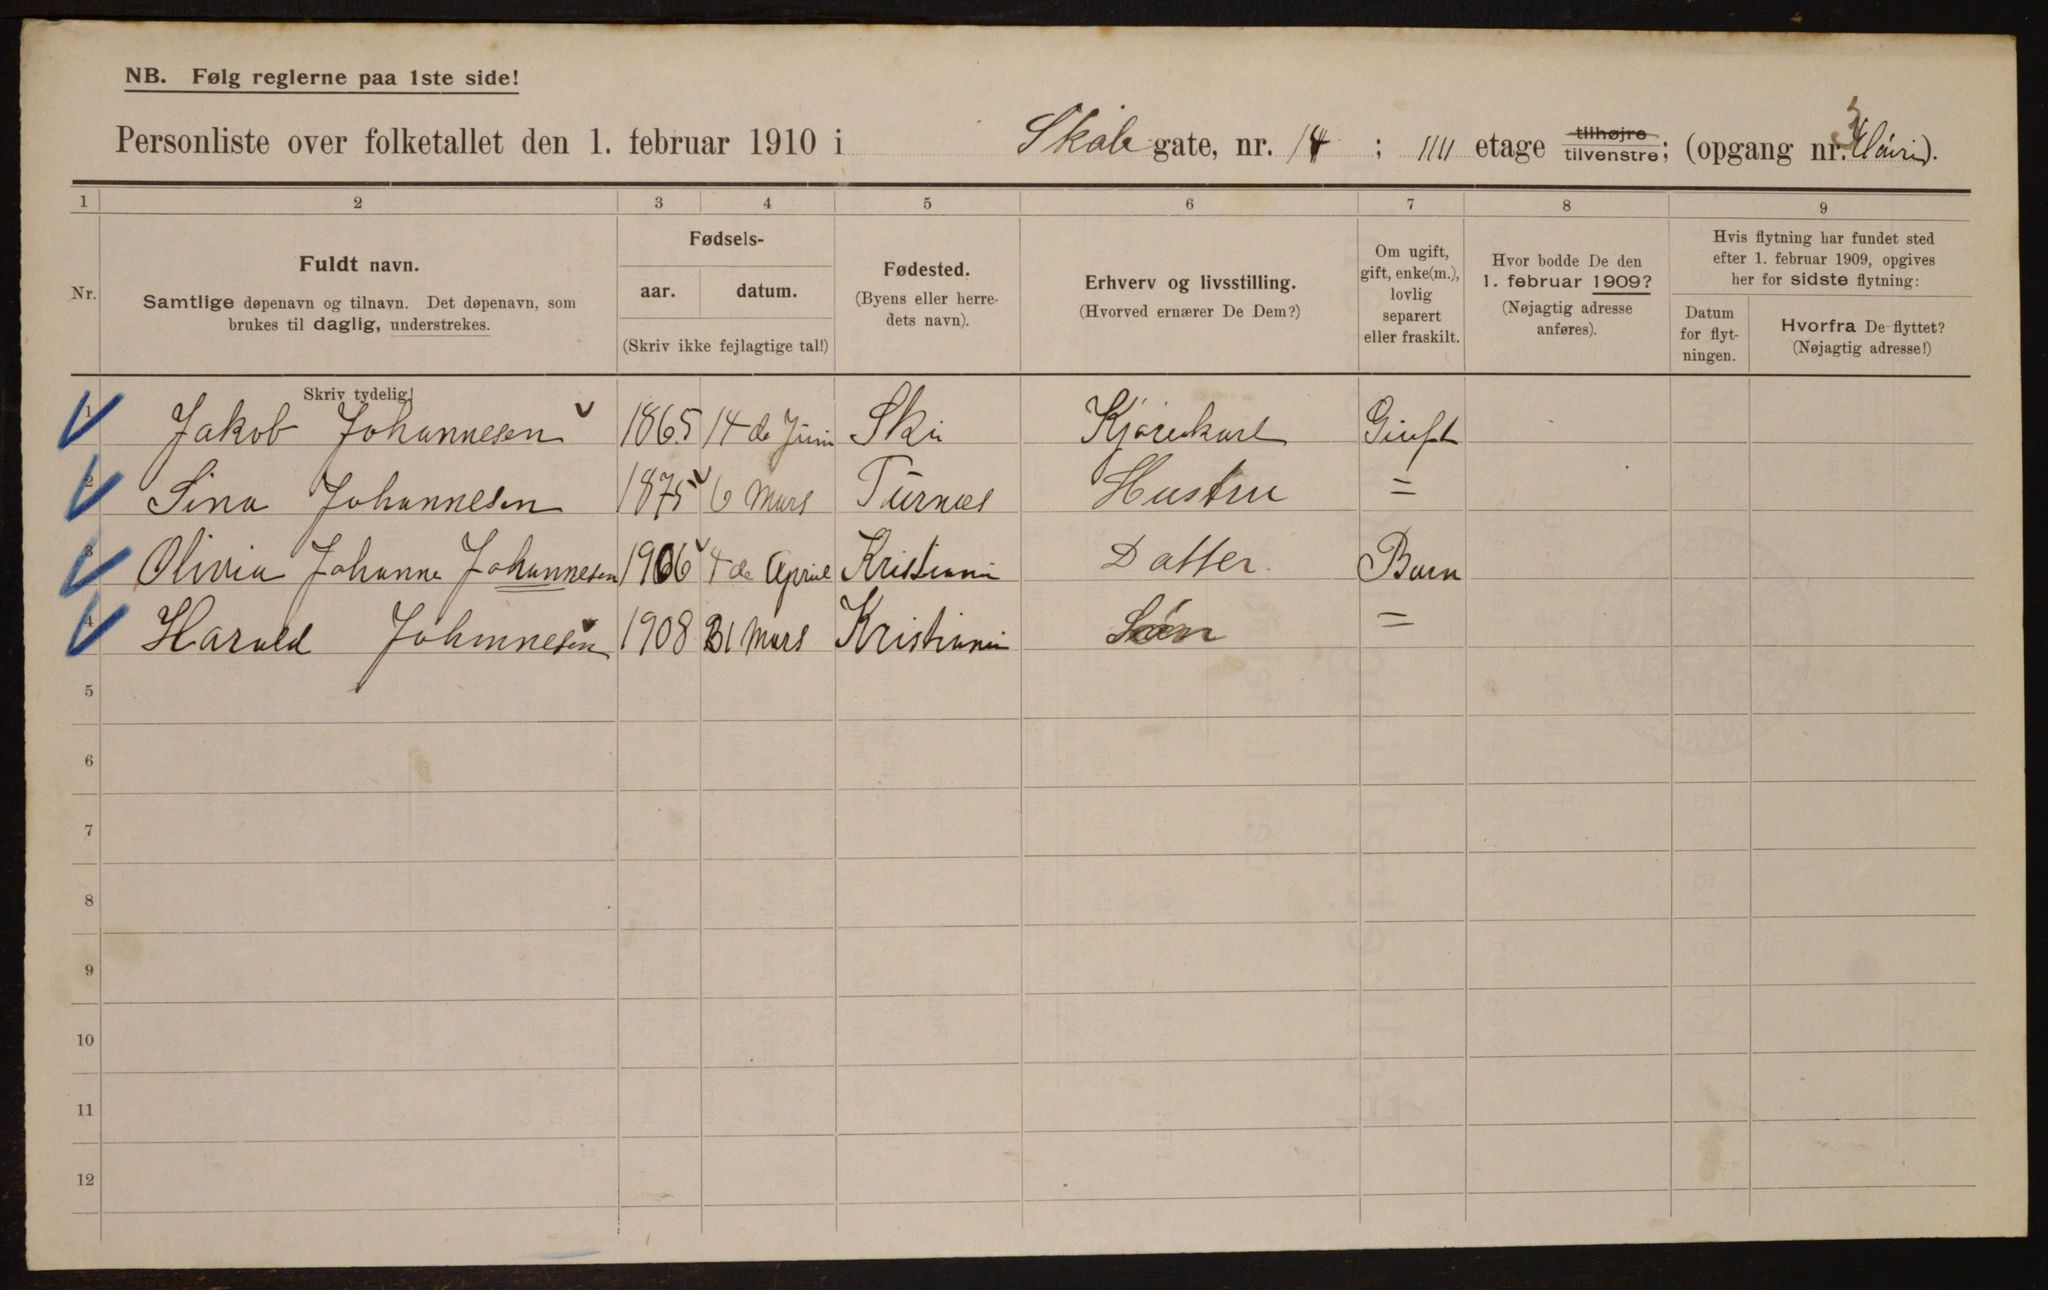 NB. Følg reglerne paa 1ste side!
Personliste over folketallet den 1. februar 1910 i Skole gate, nr. 14 ; IIII etage tilhøjre tilvenstre; (opgang nr. ).
1 2 3 4 5 6 7 8 9
Nr.
Fuldt navn.
Samtlige døpenavn og tilnavn. Det døpenavn, som
brukes til daglig, understrekes.
Fødsels-
aar. datum.
(Skriv ikke fejlagtige tal!)
Fødested.
(Byens eller herre-
dets navn).
Erhverv og livsstilling.
(Hvorved ernærer De Dem?)
Om ugift,
gift, enke(m.),
lovlig
separert
eller fraskilt.
Hvor bodde De den
1. februar 1909?
(Nøjagtig adresse
anføres).
Hvis flytning har fundet sted
efter 1. februar 1909, opgives
her for sidste flytning:
Datum
for flyt-
ningen.
Hvorfra De flyttet?
(Nøjagtig adresse!)
Skriv tydelig!
1 Jakob Johannesen 1865 14 de Juni Ski Kjørekarl Gieft
2 Sina Johannesen 1875 6 Mars Hustru =
3 Olivia Johanne Johannesen 1906 4 de April Kristiania Datter. Barn
4 Harald Johannesen 1908 31 Mars Kristiania Søn =
5
6
7
8
9
10
11
12